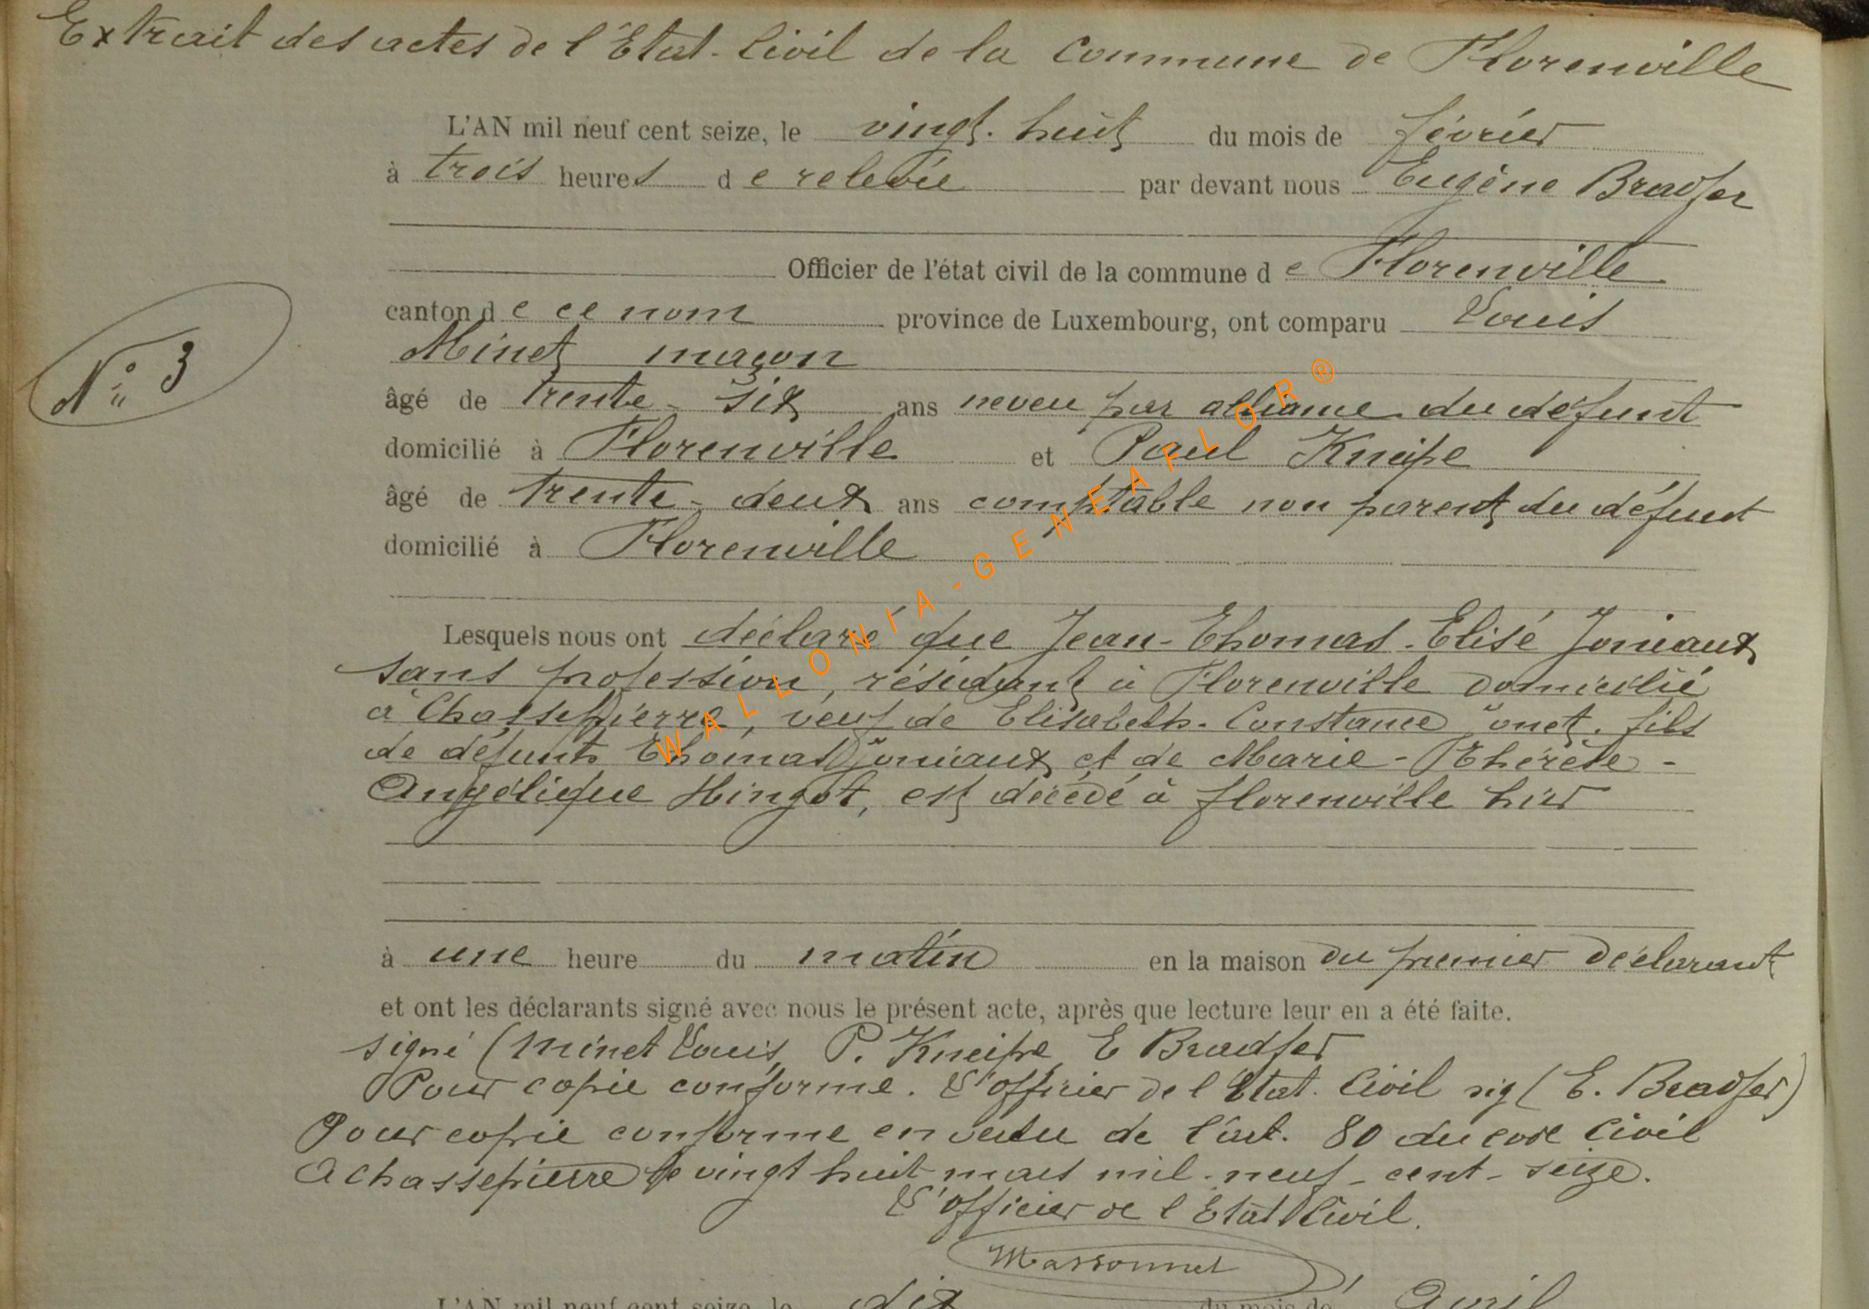 Extrait des actes de l'Etat-Civil de la Commune de Florenville
L'AN mil neuf cent seize, le vingt-huit du mois de février
à trois heures de relevée par devant nous Eugène Bradfer
Officier de l'état civil de la commune de Florenville
canton de ce nom province de Luxembourg, ont comparu Louis
Minet maçon
N° 3
âgé de trente-six ans neveu par alliance du défunt
domicilié à Florenville et Paul Kneipe
âgé de trente-deux ans comptable non parent du défunt
domicilié à Florenville
Lesquels nous ont déclaré que Jean-Thomas-Elisé Joniaux
sans profession, résidant à Florenville domicilié
à Chassepierre, veuf de Elisabeth-Constance fils
de défunts Thomas Joniaux et de Marie-Thérèse-
Angélique Hingot, est décédé à florenville hier
à une heure du matin en la maison du premier déclarant
et ont les déclarants signé avec nous le présent acte, après que lecture leur en a été faite.
signé (Minet Louis, P. Kneipe, E Bradfer
Pour copie conforme. L'officier de l'Etat-Civil sig (E. Bradfer)
Pour copie conforme en vertu de l'art. 80 du code Civil
A chassepierre le vingt huit mars mil-neuf-cent-seize.
L'officier de l'Etat Civil.
Massonnet
L'AN mil neuf cent seize, le dix du mois de Avril
WALLONIA-GENEAFLOR®